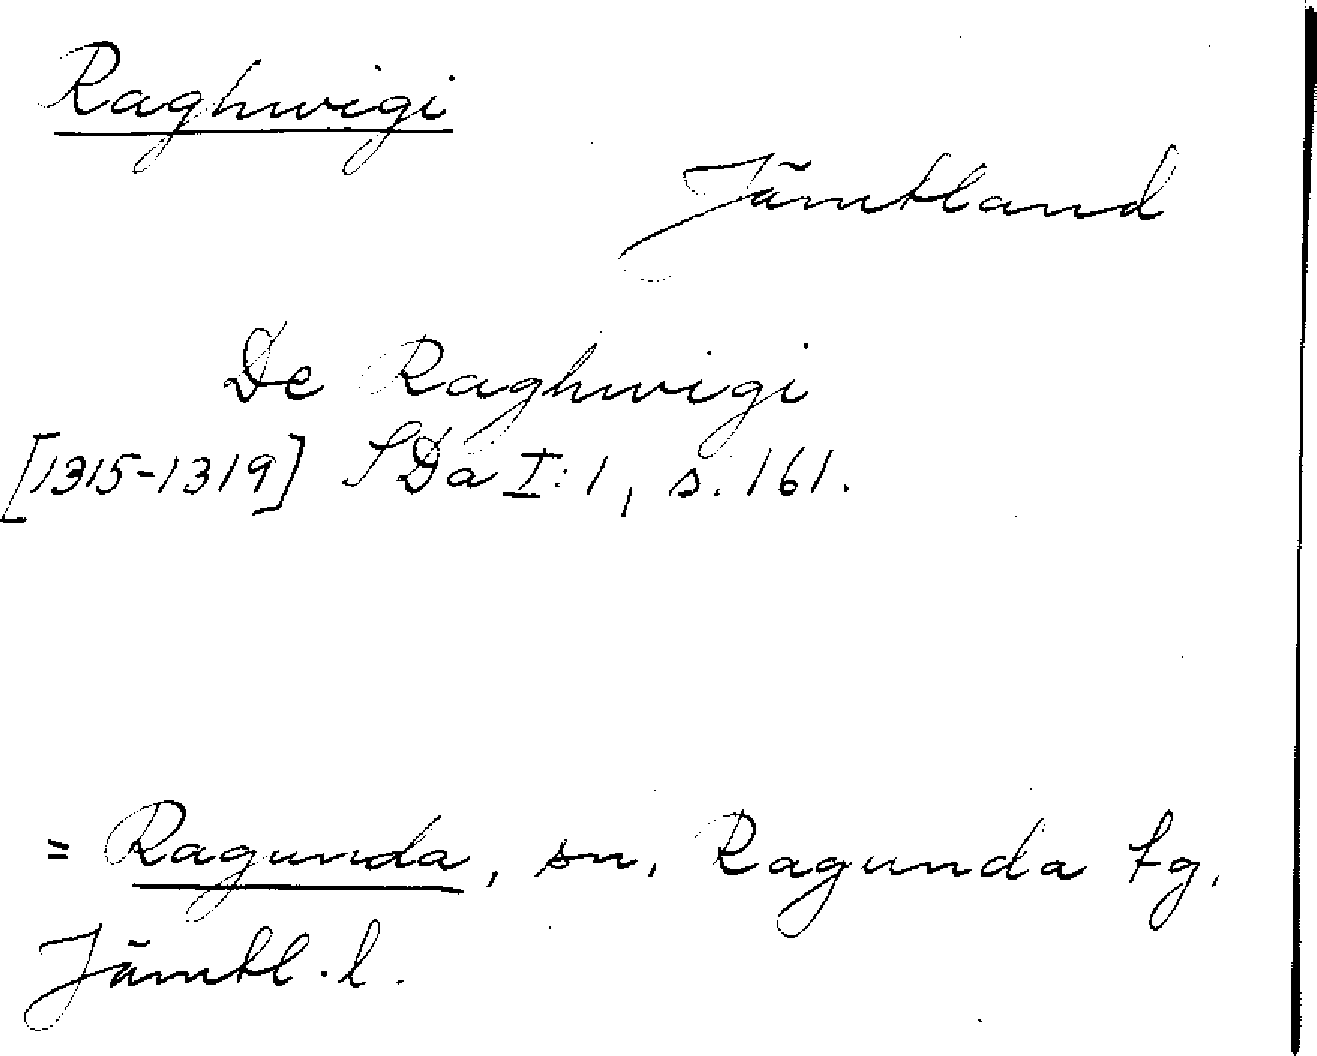 Raghwigi
Jämtland
De Raghwigi
[1315-1319] SDä I:1, s. 161.
= Ragunda, sn, Ragunda tg,
Jämtl. l.